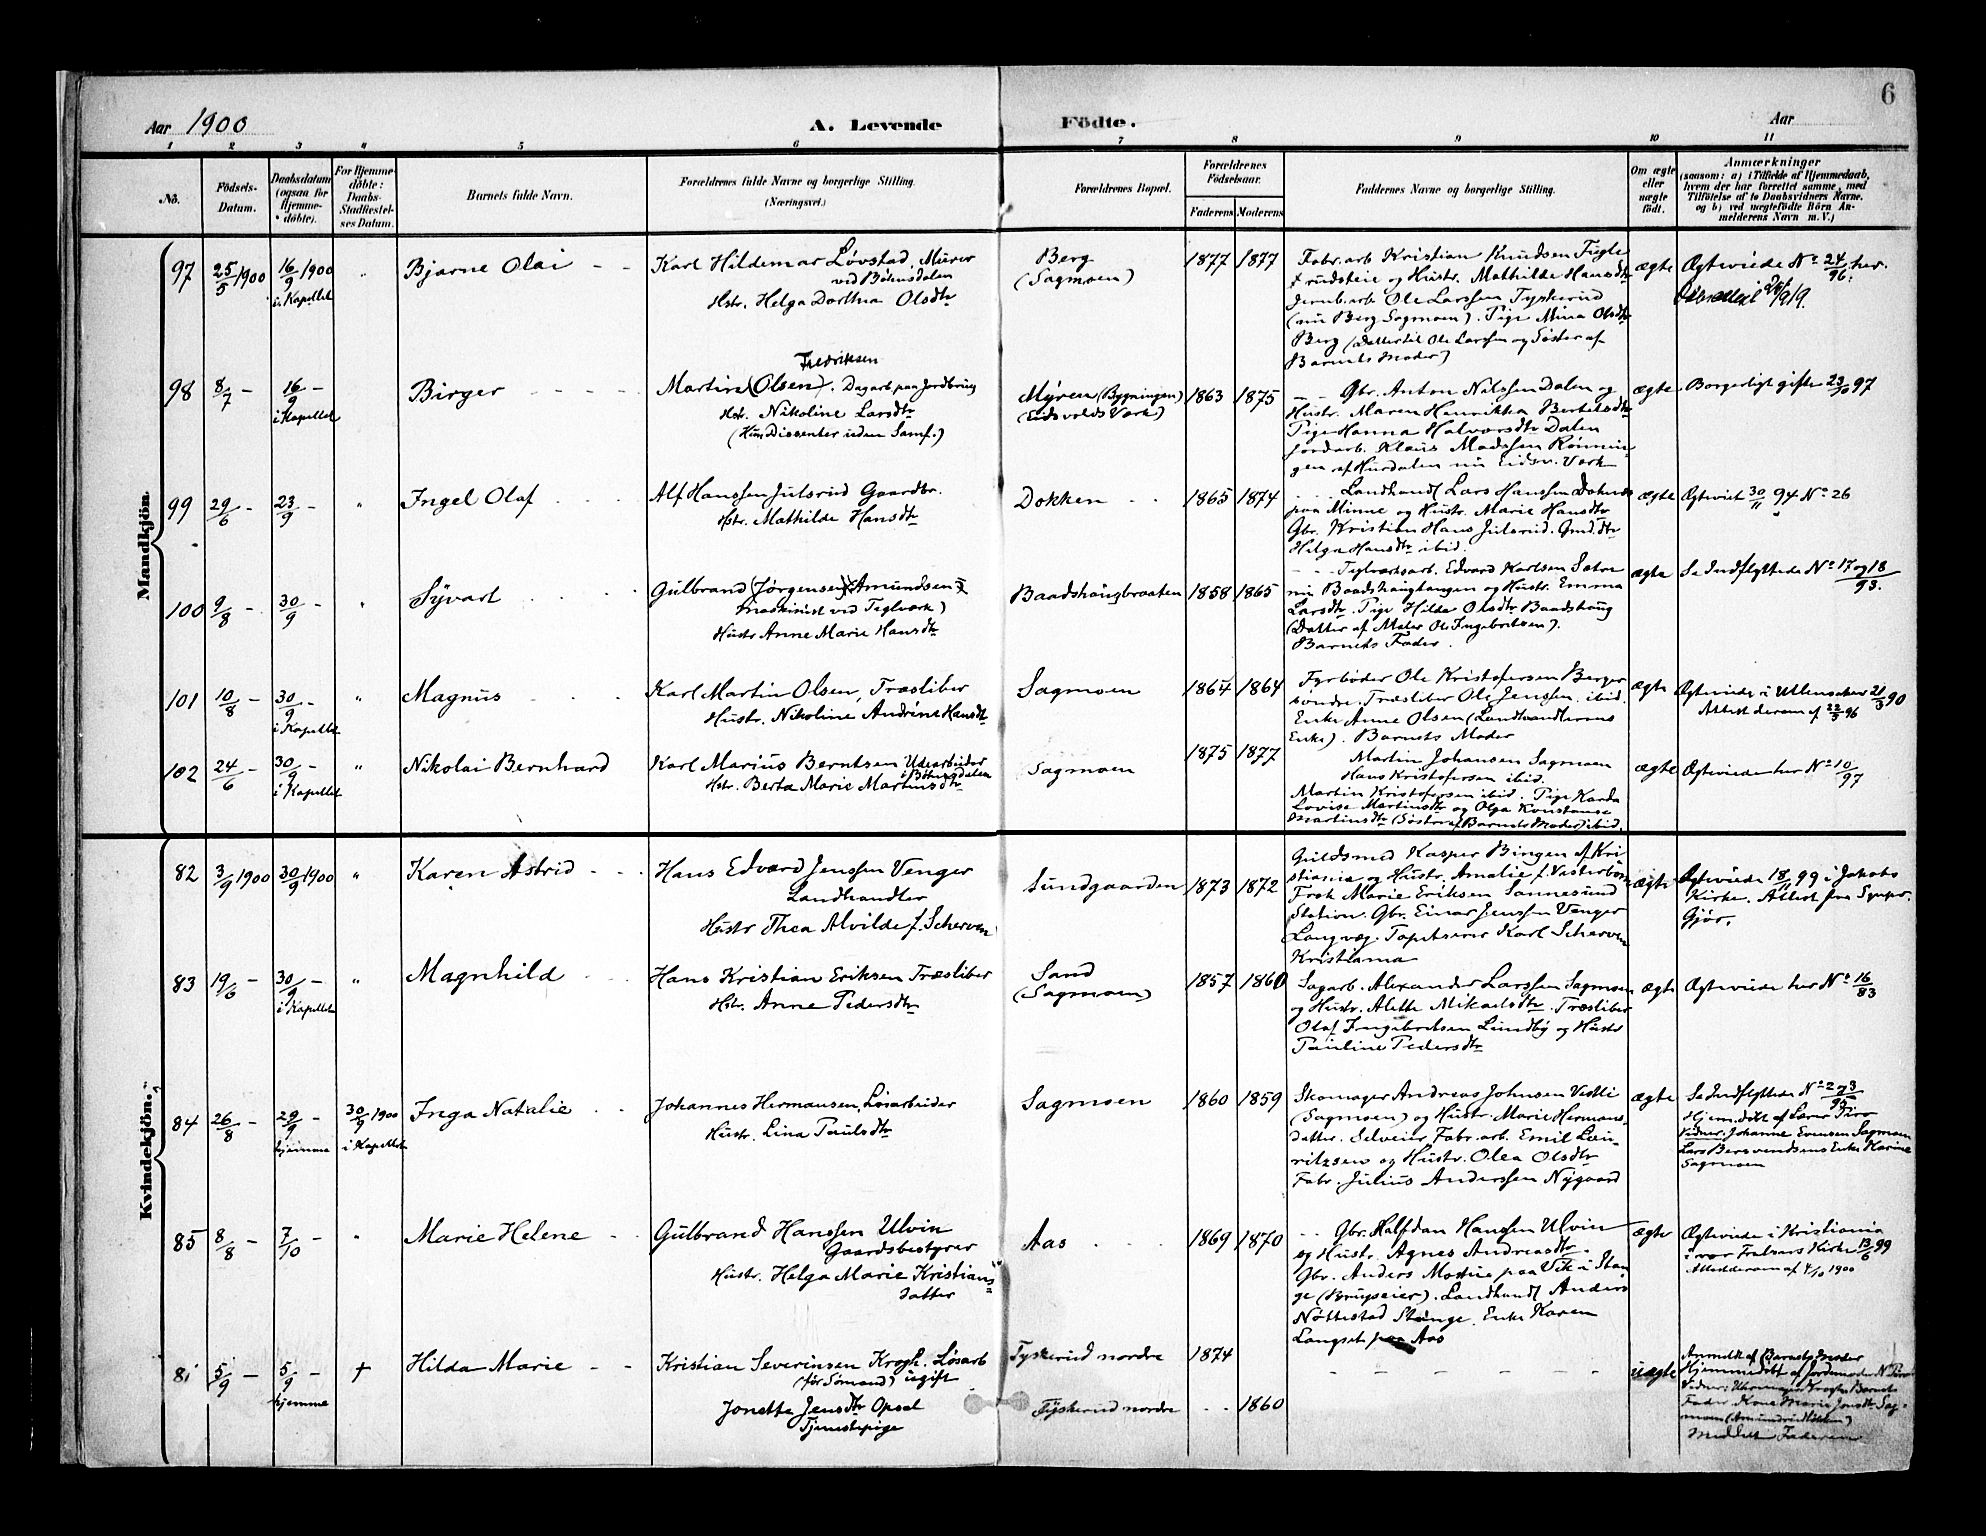 6
Aar 1900
A. Levende
Födte.
Aar
1 2 3 4 5 6 7 8 9 10 11
No.
Födsels-Datum.
Daabsdatum (ogsaa for Hjemme-döbte).
For Hjemme-döbte: Daabs-Stadfæstel-ses Datum.
Barnets fulde Navn.
Forældrenes fulde Navne og borgerlige Stilling.
(Næringsvei.)
Forældrenes Bopæl.
Forældrenes Födselsaar.
Faderens Moderens
Faddernes Navne og borgerlige Stilling.
Om ægte eller uægte födt.
Anmærkninger
(saasom: a) i Tilfælde af Hjemmedaab,
hvem der har forrettet samme, med
Tilföielse af to Daabsvidners Navne.
og b) ved uægtefödte Börn An-
melderens Navn m. V.)
Mandkjön.
97 25/5 1900 16/9 1900 i Kapellet "
Bjarne Olai
Karl Hildemar Løvstad, Murer
ved Bönsdalen
Hstr. Helga Dorthea Olsdtr
Berg
(Sagmoen)
1877 1877
Fabr.arb. Kristian Knudsen Fugle
og Hustr. Mathilde Hansdtr
Jernb.arb. Ole Larssen Tyskerud
(nu Berg Sagmoen). Pige Mina Olsdtr
Berg (Datter til Ole Larssen og Söster af
Barnets Moder)
ægte
Ægteviede No 24/96 her.
98 8/7 - 16/9 - i Kapellet
Birger
Fredriksen
Martin (Olsen). Dagarb. paa Jordbrug
Hst. Nikoline Larsdtr
(Hun Dissenter uden Samf.)
Myren (Bygningen)
(Eidsvolds Værk)
1863 1875
Gbr. Anton Nilssen Dalen og
Hustr. Maren Henrikka Bertelsdtr
Pige Hanna Halvorsdtr Dalen
Jordarb. Klaus Madssen Rönnin-
gen af Hurdalen nu Eidsv. Værk
ægte
Borgerligt gifte 97
99 29/6 - 23/9 - "
Ingel Olaf
Alf Hanssen Julsrud Gaardbr.
Hstr. Mathilde Hansdtr
Dokken
1865 1874
Landhandl Lars Hanssen
paa Minne og Hustr. Marie Hansdtr
Gbr. Kristian Hans Julsrud. Gmd.dtr
Helga Hansdtr ibid.
ægte
Ægteviet 30/11 94 No 26
100 9/8 - 30/9 - "
Syvart
Gulbrand (Jørgensen) Amundsen
Maskinist ved Teglværk)
Hustr Anne Marie Hansdtr
Baadshaugbraaten
1858 1865
Teglværksarb. Edvard Karlsen
nu Baadshaughaugen og Hustr. Emma
Larsdtr. Pige Hilda Olsdtr Baadshaug
(Datter af Maler Ole Ingebretsen).
Barnets Fader.
ægte
Se Indflyttede No 17 og 18/93.
101 10/8 - 30/9 - i Kapellet "
Magnus
Karl Martin Olsen, Træsliber
Hustr. Nikoline Andrine Hansdtr
Sagmoen
1864 1864
Fyrböder Ole Kristofersen Berger
söndre. Træsliber Ole Jenssen ibid.
Enke Anne Olsen (Landhandlerens
Enke). Barnets Moder
ægte
Ægteviede i Ullensaker 21/3 90
Attest derom af 96
102 24/6 - 30/9 - i Kapellet "
Nikolai Bernhard
Karl Marius Berntsen Udearbeider
i Bönsdalen
Hstr. Berta Marie Martinsdtr
Sagmoen
1875 1877
Martin Johansen Sagmoen
Hans Kristofersen ibid.
Martin Kristofersen ibid. Pige Karda
Lovise Martinsdtr og Olga Konstanse
Martinsdtr (Söstre af Barnets Moder) ibid.
ægte
Ægteviede her No 10/97
Kvindekjön.
82 3/9 1900 30/9 1900 "
Karen Astrid
Hans Edvard Jenssen Venger
Landhandler
Hustr Thea Alvilde f. Scherven
Sundgaarden
1873 1872
Guldsmed Kasper Bingen af Kri
stiania og Hustr. Amalie f. Vesterbom
Frøk Marie Eriksen Sannesund
Station. Gbr. Einar Jenssen Venger
Langvæg. Tapetserer Karl Scherven
Kristiania
ægte
Ægteviede 18/11 99 i Jakobs
Kirke. Attest fra Sympr.
Gjör.
83 19/6 - 30/9 - i Kapellet "
Magnhild
Hans Kristian Eriksen Træsliber
Hstr. Anne Pedersdtr
Sand
(Sagmoen)
1857 1860
Sagarb. Alexander Larssen Sagmoen
og Hustr. Alette Mikaelsdtr. Træsliber
Olaf Ingebretsen Lundby og Hustr
Pauline Pedersdtr
ægte
Ægteviede her No 16/83
84 26/8 - 29/9 - hjemme 30/9 1900 i Kapellet
Inga Natalie
Johannes Hermansen, Løsarbeider
Hustr. Lina Paulsdtr
Sagmoen
1860 1859
Skomager Andreas Johnsen Vestli
(Sagmoen) og Hustr. Marie Hermans-
datter. Selveier Fabr. arb. Emil Lau-
ritzsen og Hustr. Olea Olsdtr
Fabr. Julius Anderssen Nygaard
ægte
Se Indflyttede No
Hjem. döbt af Lærer
Vidner: Johanne Evensen Sagmoen
Lars Bersvendsens Enke Karine
Sagmoen
85 8/8 - 7/10 - "
Marie Helene
Gulbrand Hanssen Ulvin
Gaardsbestyrer
Hustr. Helga Marie Kristians-
datter
Aas
1869 1870
Gbr. Halfdan Hanssen Ulvin
og Hustr. Agnes Andreasdtr.
Gbr. Anders Mostue paa Vik i Stan
ge (Brugseier). Landhandl Anders
Nöttestad Stange. Enke Karen
Langset paa Aas
ægte
Ægteviede i Kristiania
i vor Frelsers Kirke 13/6 99
Att. derom af 4/10 1900
81 5/9 - 5/9 - hjemme +
Hilda Marie
Kristian Severinsen Krogh. Løsarb
(før Sömand) ugift
Jonette Jensdtr Opsal
Tjenestepige
Tyskerud nordre
Tyskerud nordre
1874
1860
uægte
Anmeldt af Barnets Moder
Hjemmedöbt af Jordmoder
Barnets
Fader Kone Marie Jensdtr Sag-
moen
Meldt Faderen